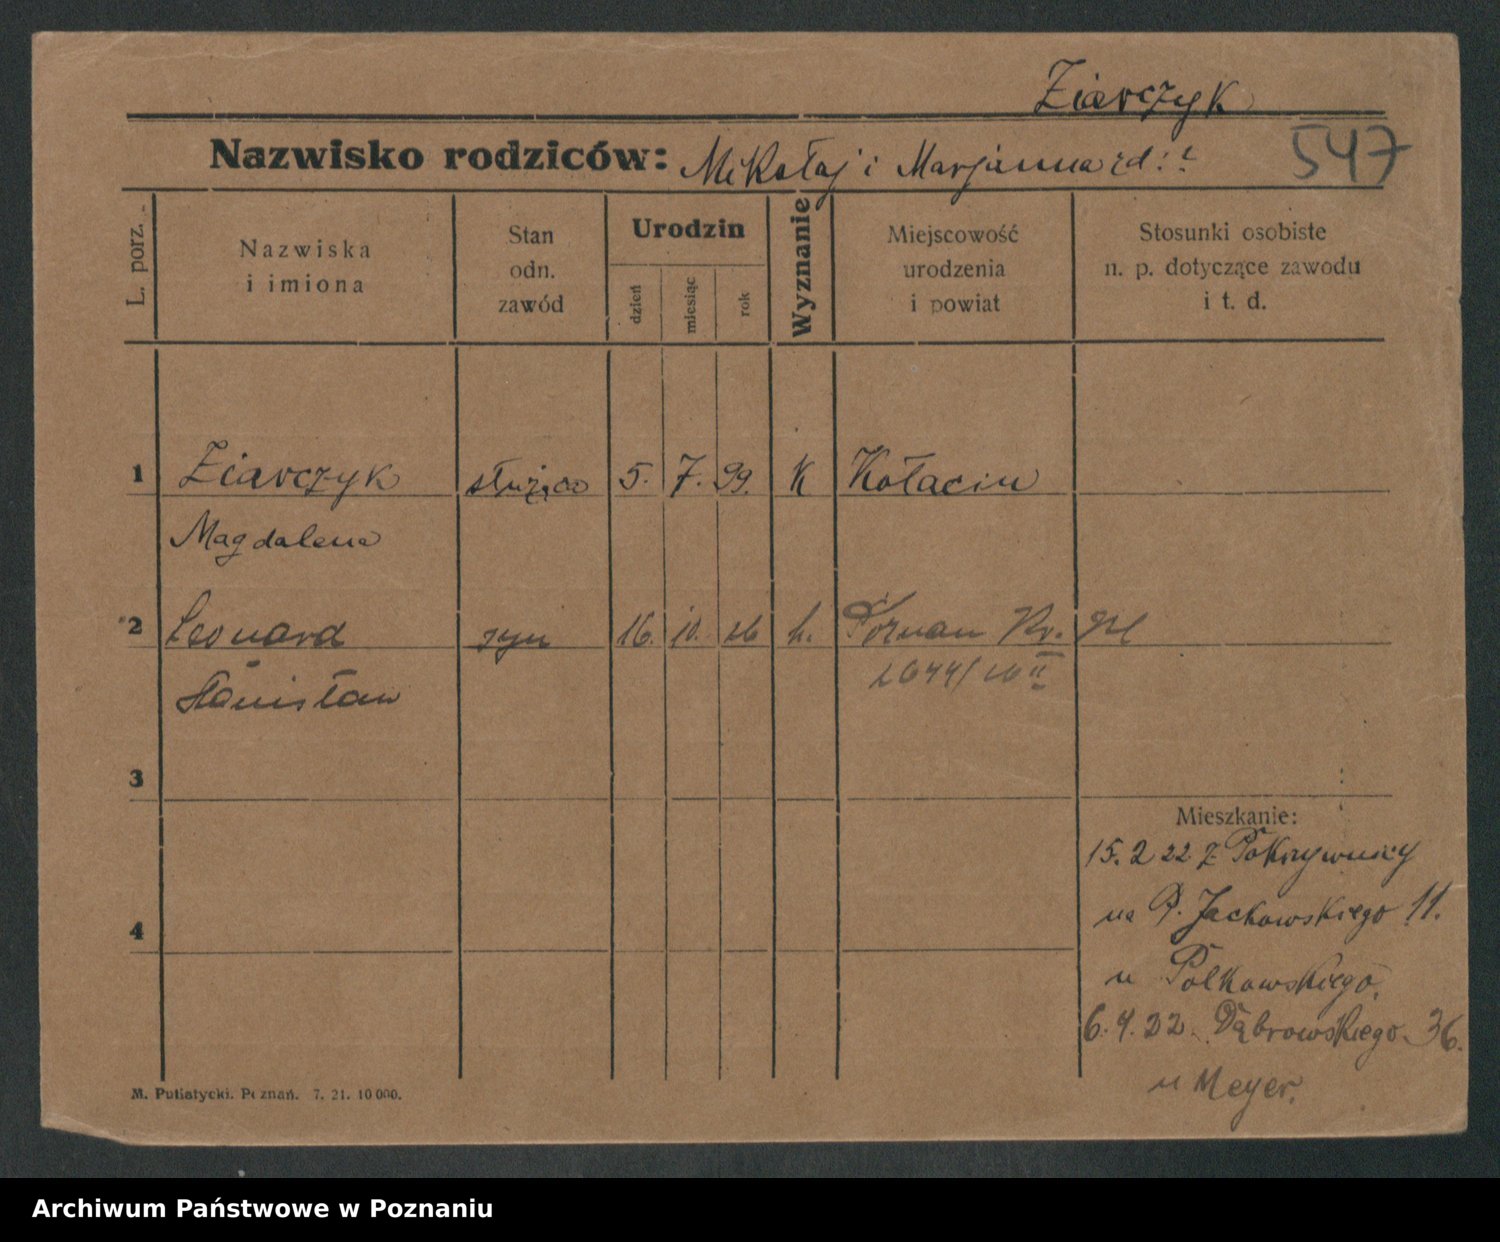 Ziarczyk
Nazwisko rodziców: Mikołaj i Marjanna zd: ?
547
L. porz.
Nazwiska
i imiona
Stan
odn.
zawód
Urodzin
dzień
miesiąc
rok
Wyznanie
Miejscowość
urodzenia
i powiat
Stosunki osobiste
n. p. dotyczące zawodu
i t. d.
1 Ziarczyk służąca 5. 7. 99. K Kołacin
Magdalena
2 Leonard syn 16. 10. 26 k. Poznan Nr.
Stanisław
3
Mieszkanie:
15. 2 22 z Pokrzywnicy
4
na P. Jackowskiego 11.
u Polkowskiego.
6. 4. 22. Dąbrowskiego 36.
u Meyer.
M. Putiatycki. Poznań. 7. 21. 10 000.
Archiwum Państwowe w Poznaniu